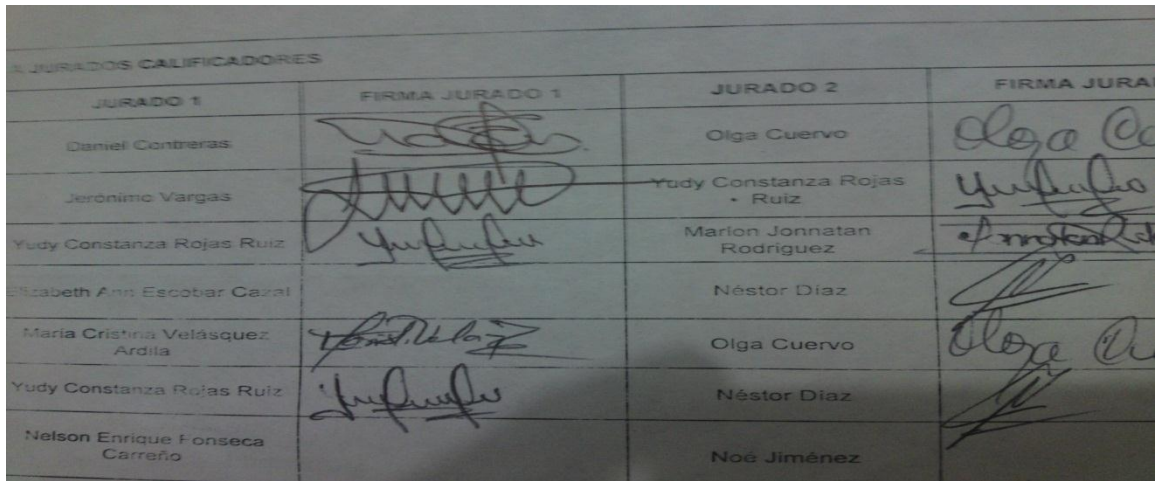 A JURADOS CALIFICADORES
JURADO 1 FIRMA JURADO 1 JURADO 2 FIRMA JURA
Daniel Contreras Olga Cuervo Olga Cu
Jerónimo Vargas Yudy Constanza Rojas
Ruiz
Yudy Constanza Rojas Ruiz Marlon Jonnatan
Rodriguez
Elizabeth Ann Escobar Cazal Néstor Díaz
María Cristina Velásquez
Ardila Olga Cuervo Olga Cu
Yudy Constanza Rojas Ruiz Néstor Díaz
Nelson Enrique Fonseca
Carreño Noé Jiménez